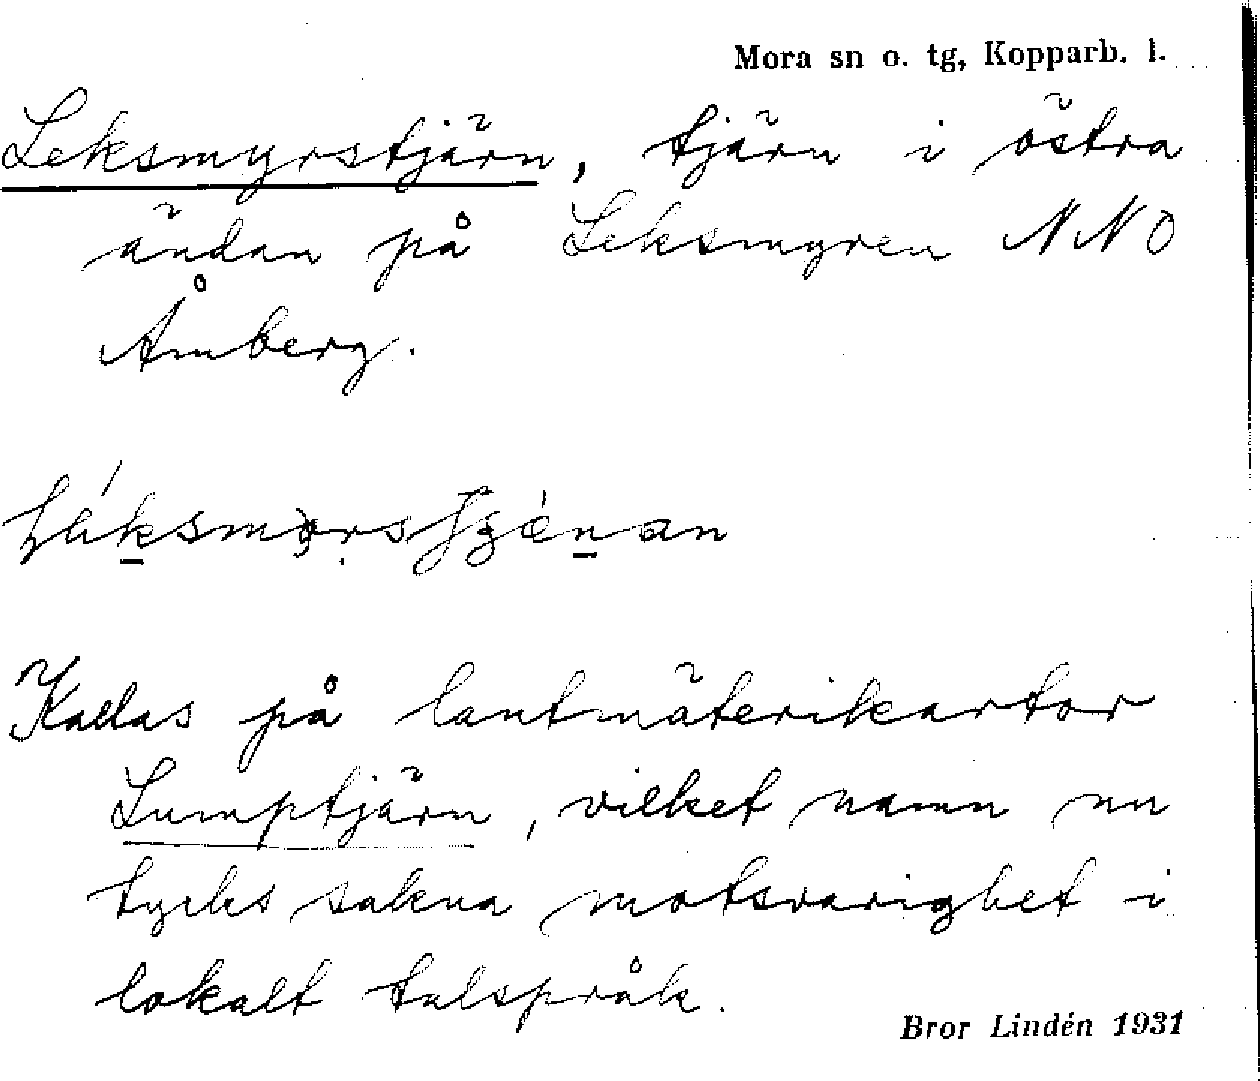 Mora sn o. tg, Kopparb. l.
Leksmyrstjärn, tjärn i östra
ändan på Leksmyren NNO
Åmberg.
Kallas på lantmäterikartor
Lumptjärn, vilket namn nu
tycks sakna motsvarighet i
lokalt talspråk.
Bror Lindén 1931